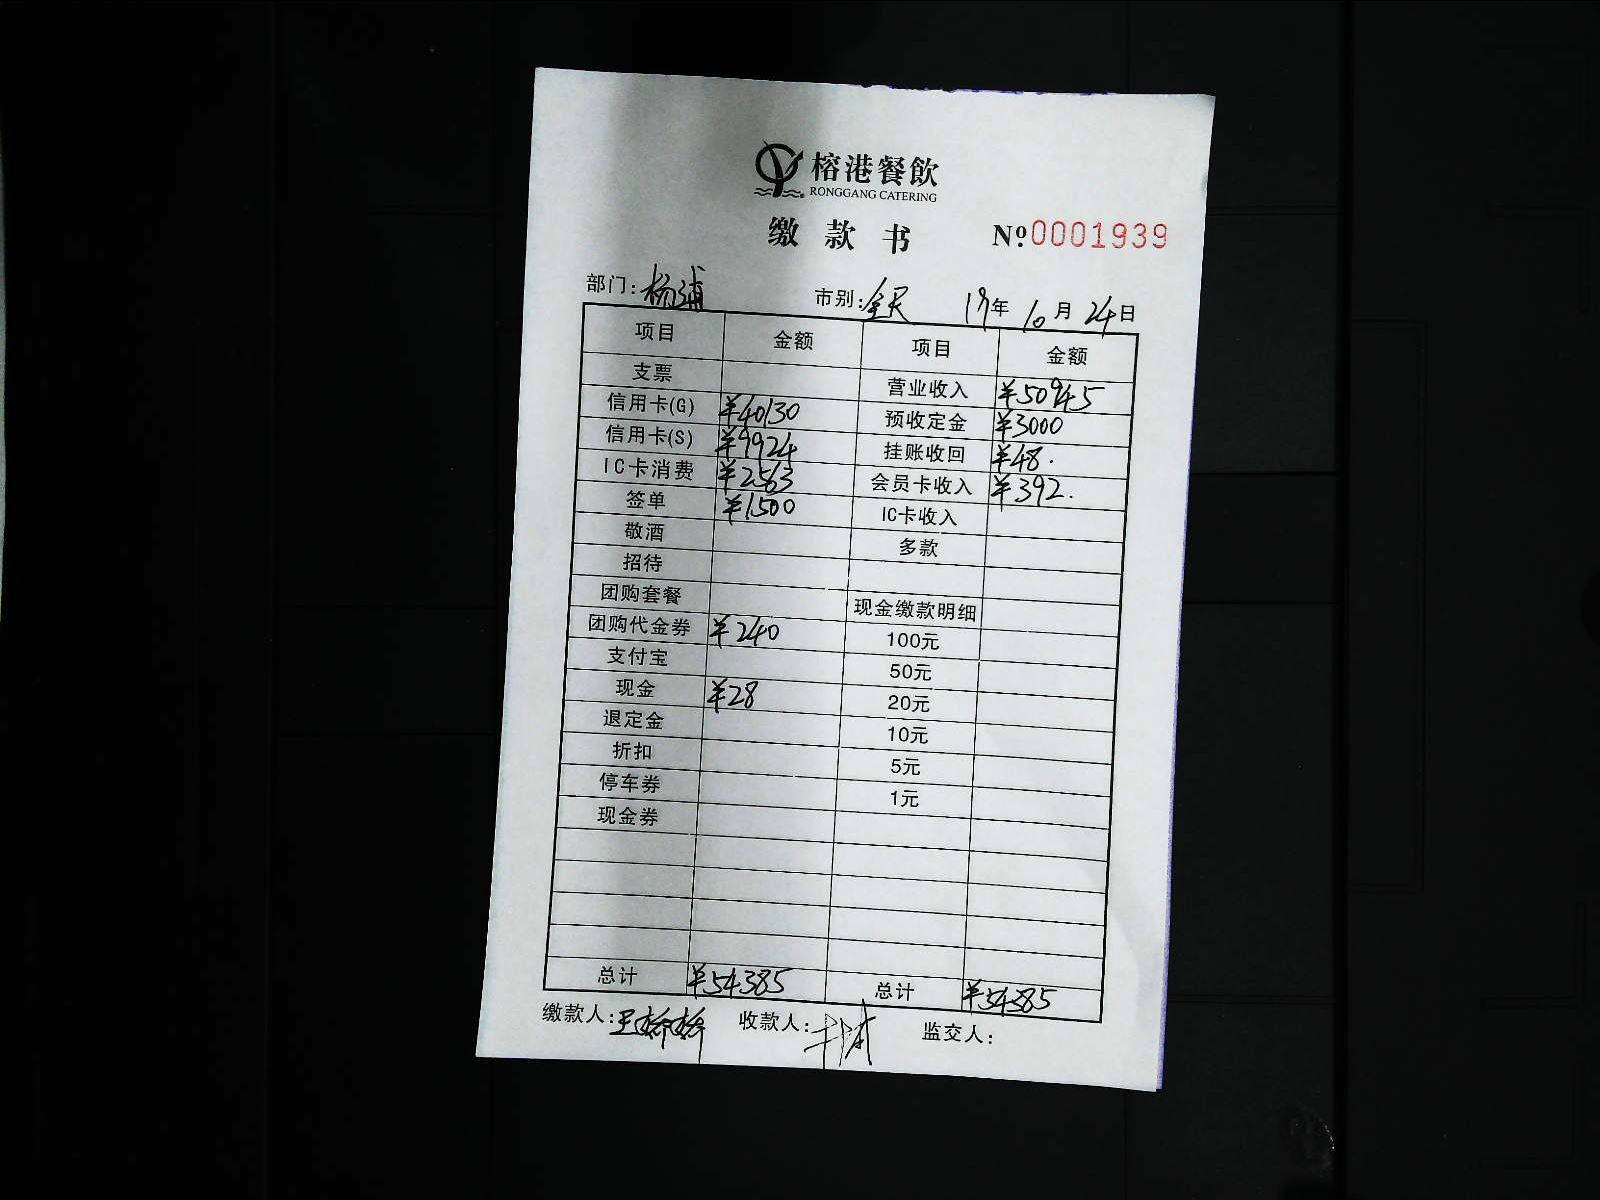 榕港餐飲
RONGGANG CATERING
缴款书 №0001939
部门:杨浦 市别:全天 17年10月24日
项目 金额 项目 金额
支票 营业收入 ¥50945
信用卡(G) ¥40130 预收定金 ¥3000
信用卡(S) ¥9924 挂账收回 ¥48.
IC卡消费 ¥2563 会员卡收入 ¥392.
签单 ¥1500 IC卡收入
敬酒 多款
招待
团购套餐 现金缴款明细
团购代金券 ¥240 100元
支付宝 50元
现金 ¥28 20元
退定金 10元
折扣 5元
停车券 1元
现金券
总计 ¥54385 总计 ¥54385
缴款人:王 收款人: 监交人: